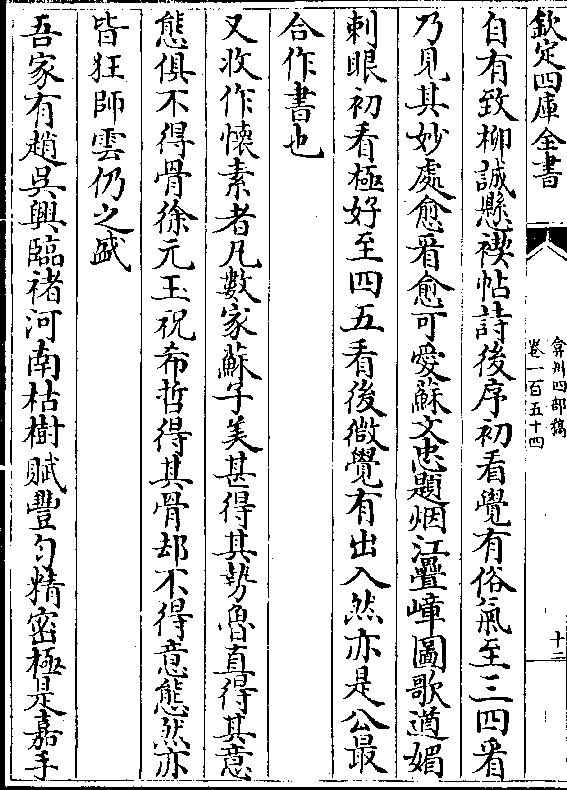 欽定四庫全書
弇州四部稿
卷一百五十四
十二
自有致柳誠懸禊帖詩後序初看覺有俗氣至三四看
乃見其妙處愈看愈可愛蘇文忠題烟江疊嶂圖歌遒媚
刺眼初看極好至四五看後微覺有出入然亦是公最
合作書也
又效作懷素者凡數家蘇子美甚得其勢魯直得其意
態俱不得骨徐元玉祝希哲得其骨却不得意態然亦
皆狂師雲仍之盛
吾家有趙吳興臨褚河南枯樹賦豐勻精密極是嘉手